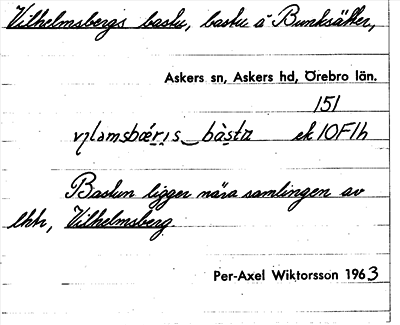 Vilhelmsbergs bastu, bastu å Bunksätter,
Askers sn, Askers hd, Örebro län.
151
vɩlamsbǽrɩs‿bàsta ek 10F1h
Bastun ligger nära samlingen av
lhtr, Vilhelmsberg.
Per-Axel Wiktorsson 1963